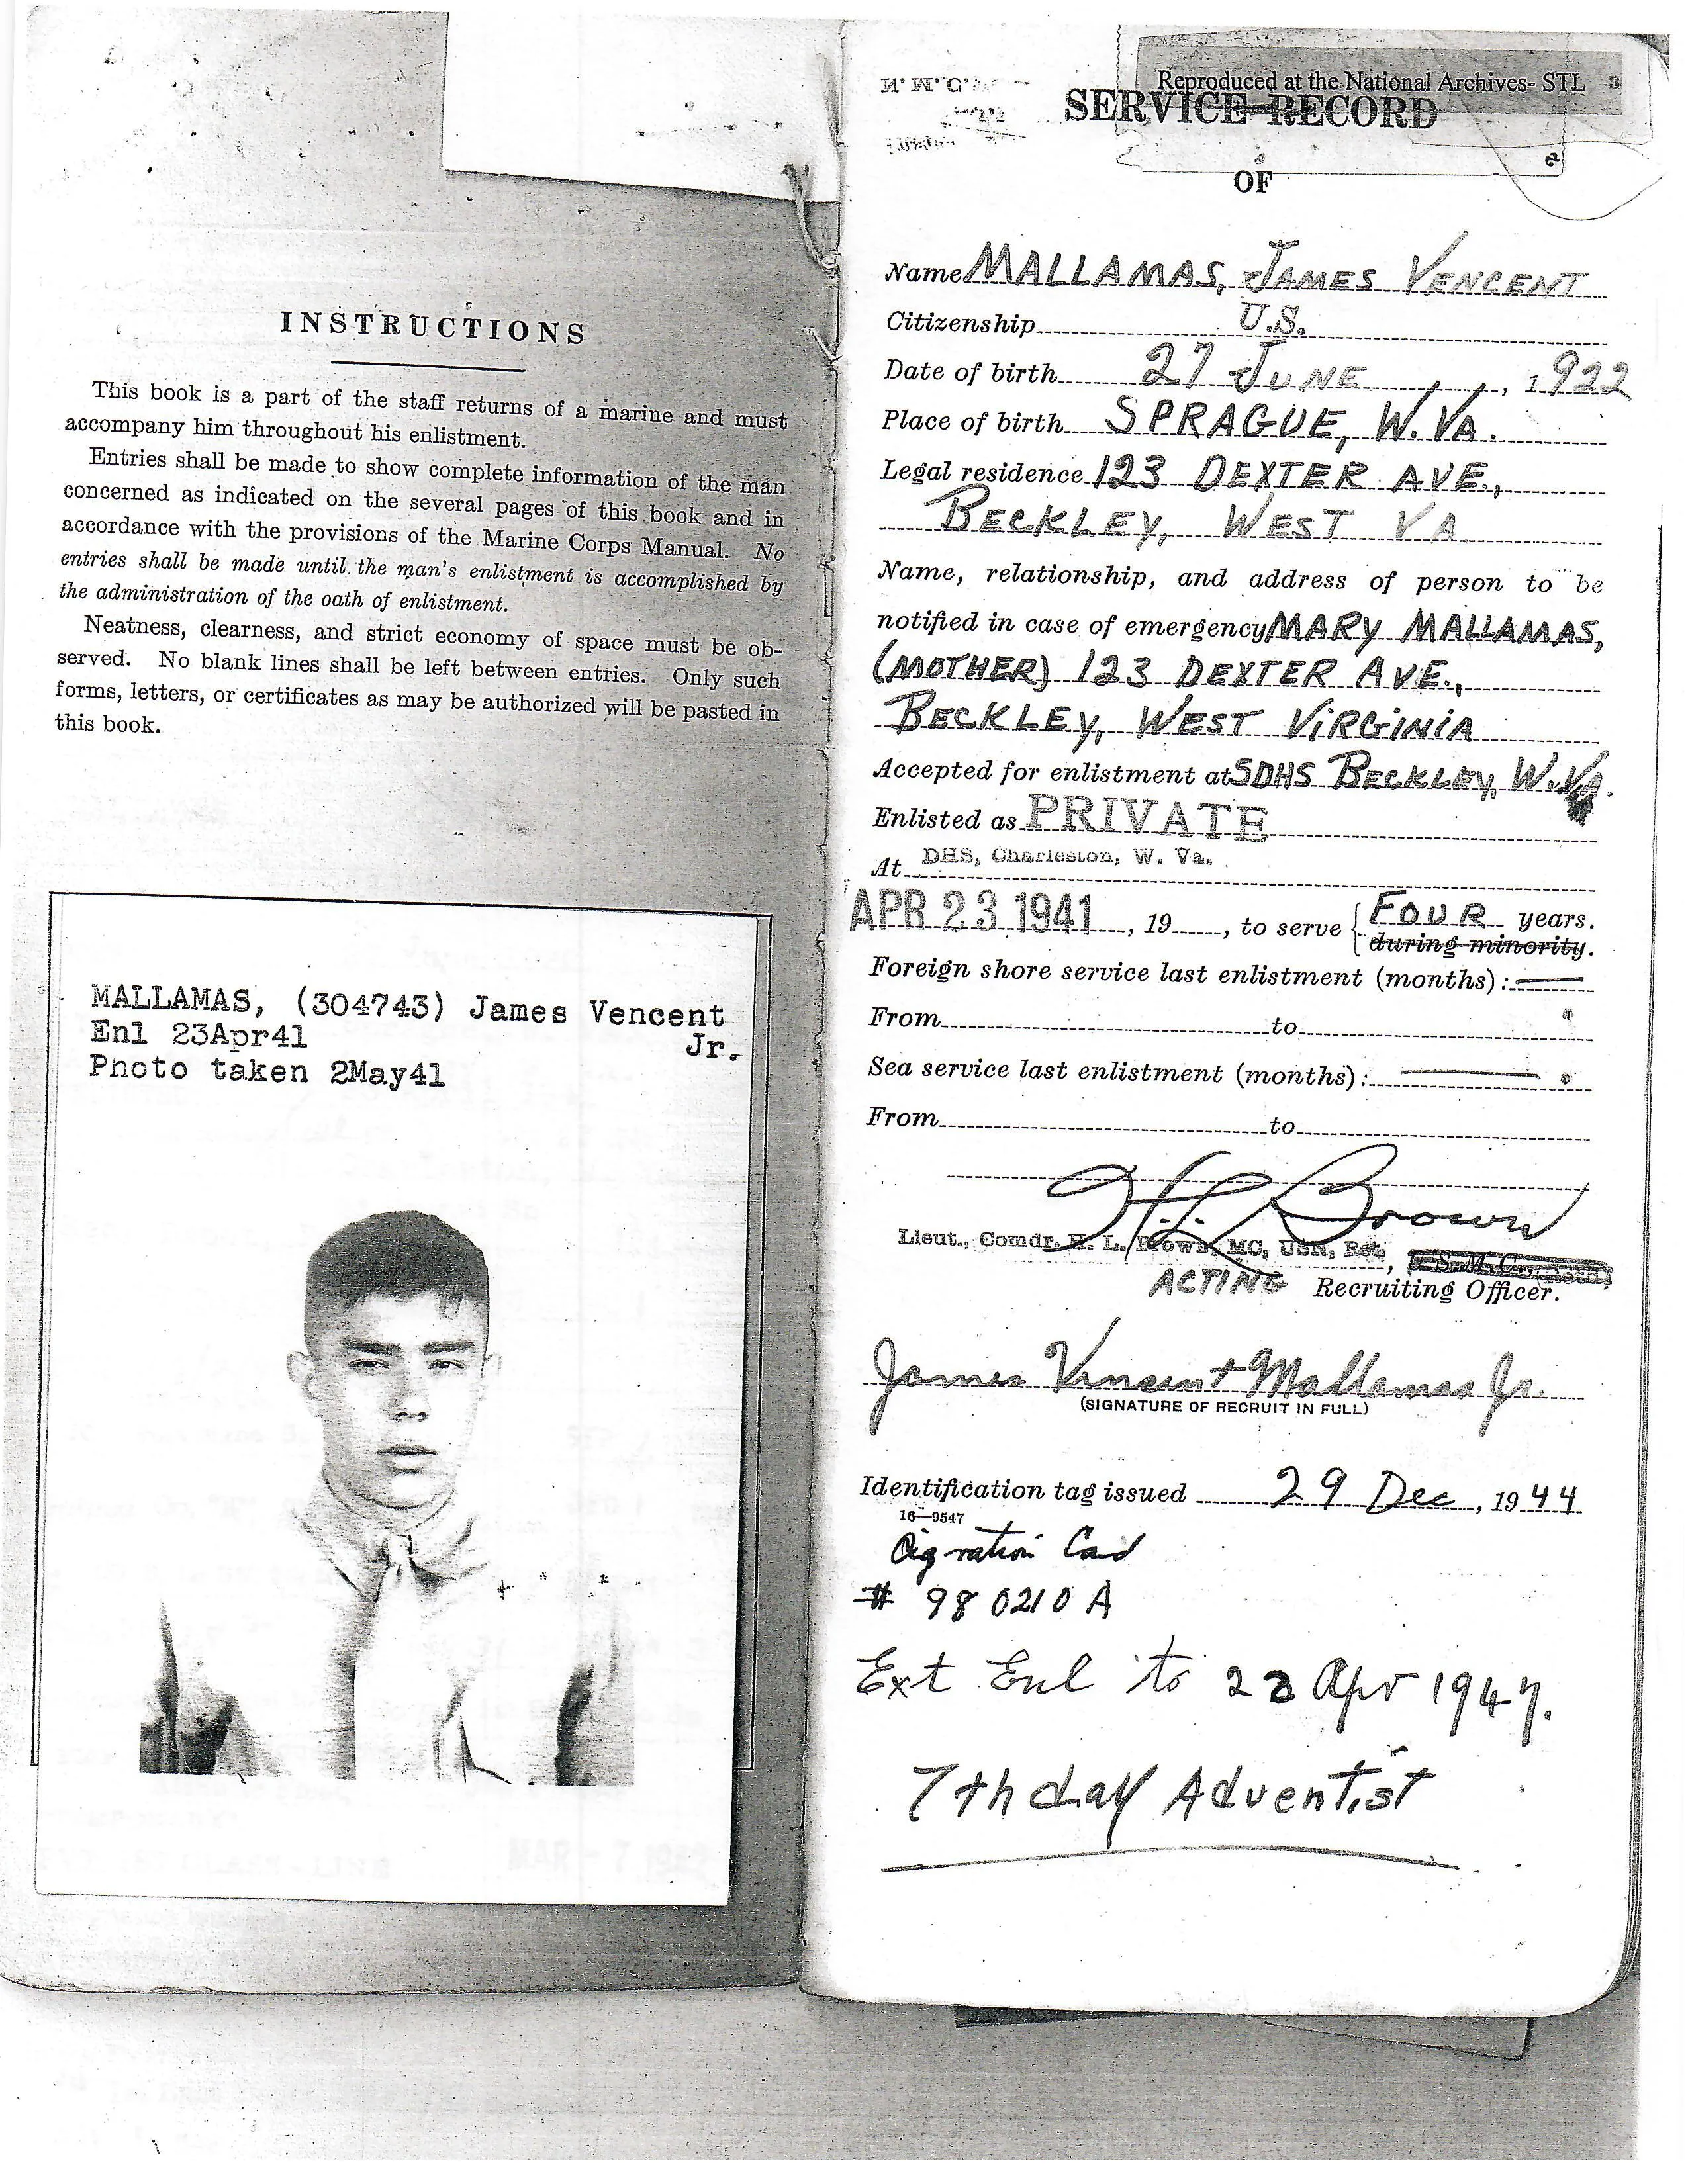 INSTRUCTIONS
This book is a part of the staff returns of a marine and must
accompany him throughout his enlistment.
Entries shall be made to show complete information of the man
concerned as indicated on the several pages of this book and in
accordance with the provisions of the Marine Corps Manual. No
entries shall be made until the man's enlistment is accomplished by
the administration of the oath of enlistment.
Neatness, clearness, and strict economy of space must be ob-
served. No blank lines shall be left between entries. Only such
forms, letters, or certificates as may be authorized will be pasted in
this book.
MALLAMAS, (304743) James Vencent
Jr.
Enl 23Apr41
Photo taken 2May41
Reproduced at the National Archives- STL
SERVICE RECORD
OF
Name MALLAMAS, JAMES VENCENT
Citizenship U.S.
Date of birth 27 JUNE, 1922
Place of birth SPRAGUE, W. VA.
Legal residence 123 DEXTER AVE.,
BECKLEY, WEST VA
Name, relationship, and address of person to be
notified in case of emergency MARY MALLAMAS,
(MOTHER) 123 DEXTER AVE.,
BECKLEY, WEST VIRGINIA
Accepted for enlistment at SDHS BECKLEY, W. VA.
Enlisted as PRIVATE
At DHS, Charleston, W. Va.
APR 23 1941, 19, to serve FOUR years.
during minority.
Foreign shore service last enlistment (months):
From to
Sea service last enlistment (months):
From to
H. L. Brown
Lieut., Comdr. H. L. Brown, MC, USN, Ret, U.S.M.C.
ACTING Recruiting Officer.
James Vincent Mallamas Jr.
(SIGNATURE OF RECRUIT IN FULL)
Identification tag issued 29 Dec, 1944
16—9547
ration Card
# 980210 A
Ext Enl to 22 Apr 1947.
7th day Adventist